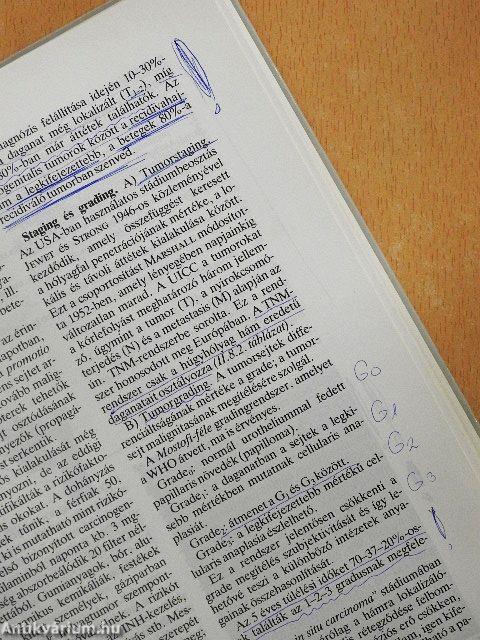 diagnózis felállítása idején 10–30%-
a daganat még lokalizált (T₁₋₂), míg
80%-ban már áttétek találhatók. Az
urogenitalis tumorok között a recidívahaj-
lam a legkifejezettebb, a betegek 80%-a
recidiváló tumorban szenved.
Staging és grading. A) Tumorstaging.
Az USA-ban használatos stádiumbeosztás
JEWET és STRONG 1946-os közleményével
kezdődik, amely összefüggést keresett
a hólyagfal penetrációjának mértéke, a lo-
kális és távoli áttétek kialakulása között.
Ezt a csoportosítást MARSHALL módosítot-
ta 1952-ben, amely lényegében napjainkig
változatlan maradt. A UICC a tumorokat
a kórlefolyást meghatározó három jellem-
ző, úgymint a tumor (T), a nyirokcsomó-
terjedés (N) és a metastasis (M) alapján az
ún. TNM-rendszerbe sorolta. Ez a rend-
szer honosodott meg Európában. A TNM-
rendszer csak a húgyhólyag hám eredetű
daganatait osztályozza (II.8.2. táblázat).
B) Tumorgrading. A tumorsejtek diffe-
renciáltságának mértéke a grade; a tumor-
sejt malignitásának megítélésére szolgál.
A Mostofi-féle gradingrendszer, amelyet
a WHO átvett, ma is érvényes.
Grade₀: normál urotheliummal fedett
papillaris növedék (papilloma).
Grade₁: a daganatban a sejtek a legki-
sebb mértékben mutatnak cellularis ana-
plasiát.
Grade₂: átmenet a G₁ és G₃ között.
Grade₃: a legkifejezettebb mértékű cel-
lularis anaplasia észlelhető.
Ez a rendszer jelentősen csökkenti a
grade megítélés szubjektivitását és így le-
hetővé teszi a különböző intézetek anya-
gainak összehasonlítását.
Az 5 éves túlélési időket 70–37–20%-os-
nak találták az 1-2-3 gradusnak megfele-
situ carcinoma" stádiumában
a hámra lokalizáló-
rétegződése felbom-
erő csökken,
G0
G1
G2
G3
az érin-
lapotban,
promotio
ens sejtet ar-
tovább malig-
terek tehetők
osztódásának
nyezők (propagá-
t serkentik.
ós kialakulását még
nyozni, de az eddigi
tifikálták a rizikófakto-
is okokat. A dohányzás
ek tűnik, a férfiak 50,
ki is mutatható mint rizikó-
első bizonyított carcinogen:
ilaminból naponta kb. 3 mg-
Antikvárium.hu